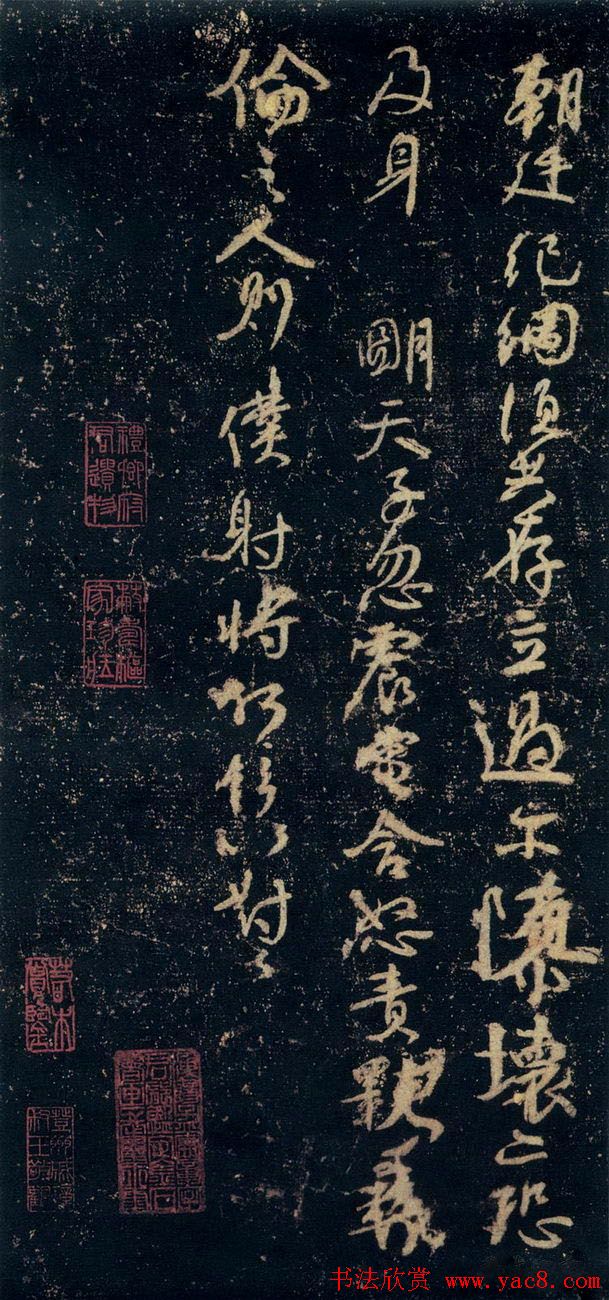 朝廷紀綱須共存立過尔隳壞亦恐
及身 明天子忽震電含怒責斁彝
倫之人則僕射將何辭以對
書法欣赏 www.yac8.com